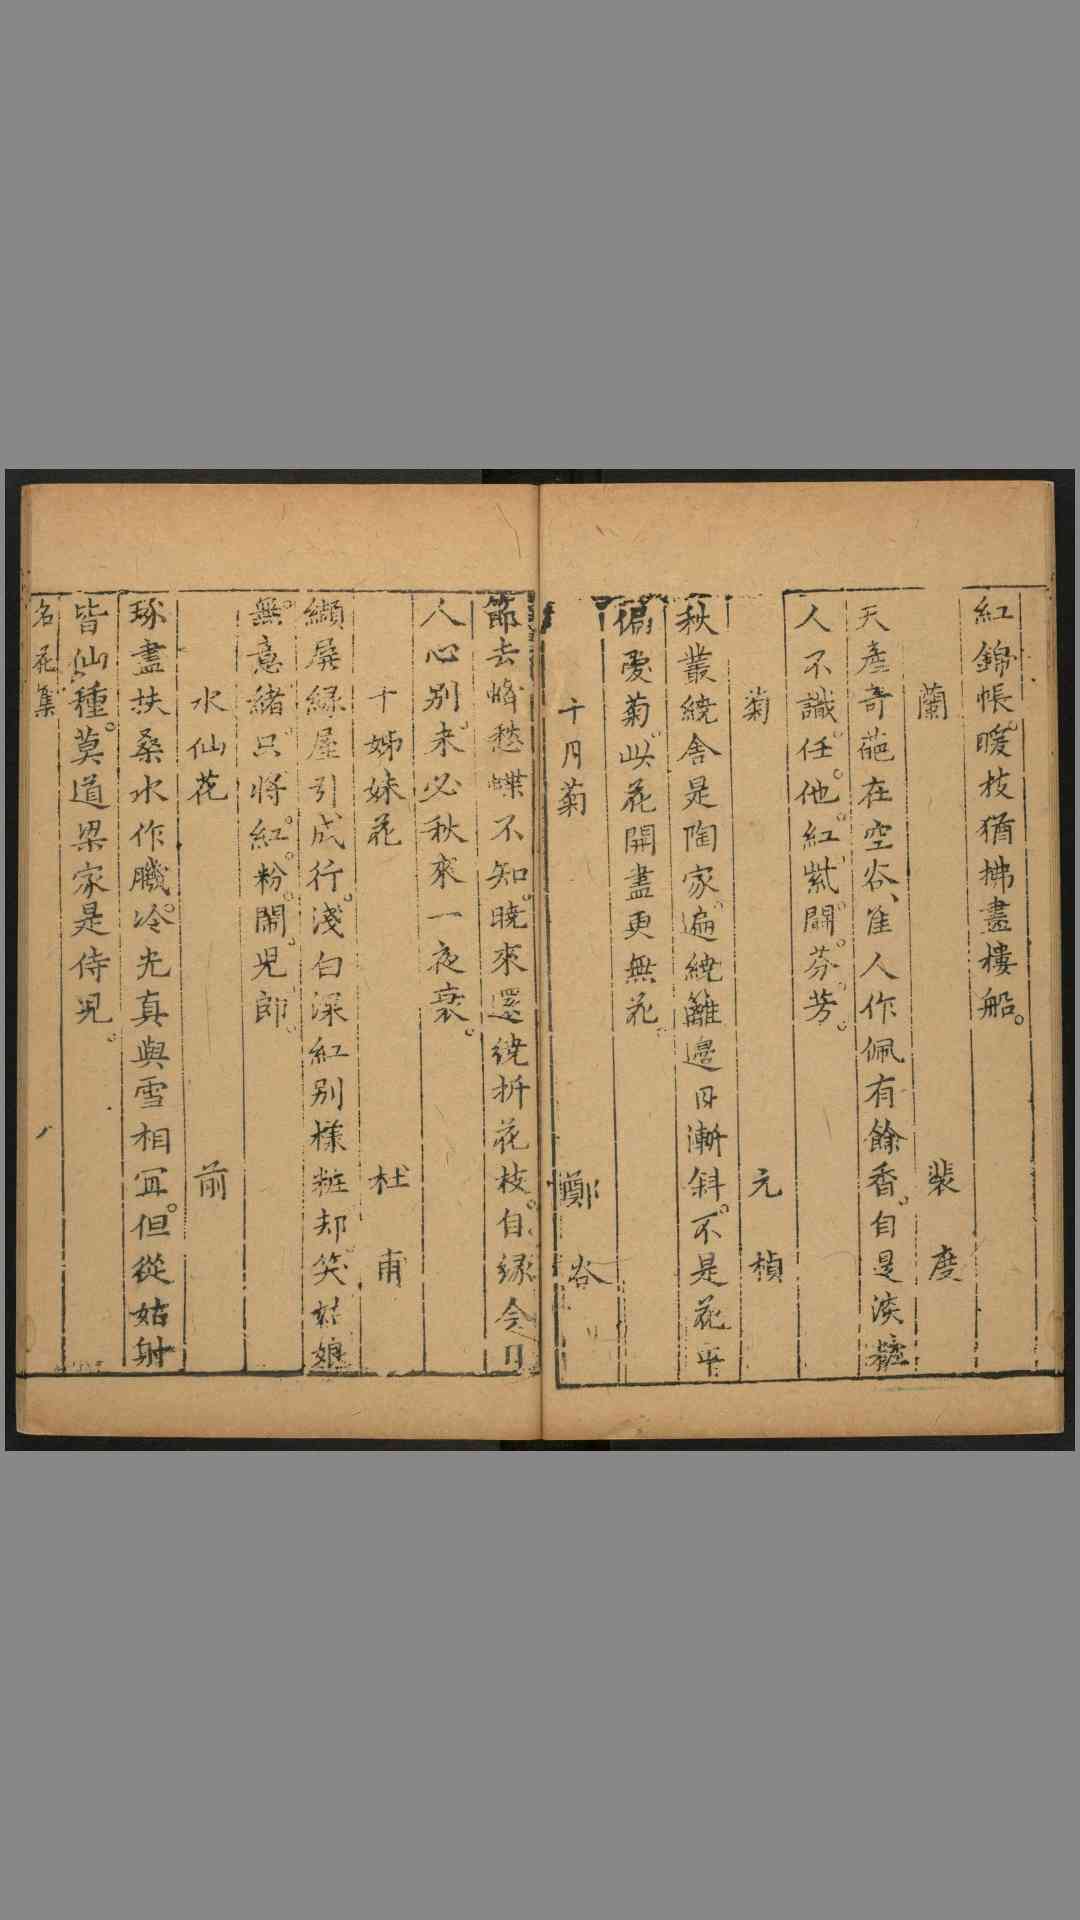 紅錦帳暖枝猶拂畫樓船。
蘭 裴度
天產奇葩在空谷、隹人作佩有餘香。自是淡粧
人不識任他紅紫鬬芬芳。
菊 元楨
秋叢繞舍是陶家遍繞籬邊日漸斜。不是花中
偏愛菊此花開盡更無花。
十月菊 鄭谷
節去蜂愁蝶不知。曉來還繞折花枝。自緣今日
人心別。未必秋來一夜衰。
十姊妹花 杜甫
纈屏緑屋引成行。淺白深紅別樣粧却笑姑娘
無意緒只將紅粉鬧兒郎。
水仙花 前
琢盡扶桑水作肌。冷光真與雪相宜。但從姑射
皆仙種。莫道梁家是侍児。
名花集